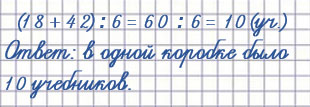 (18+42):6=60:6=10(уч.)
Ответ: в одной коробке было
10 учебников.